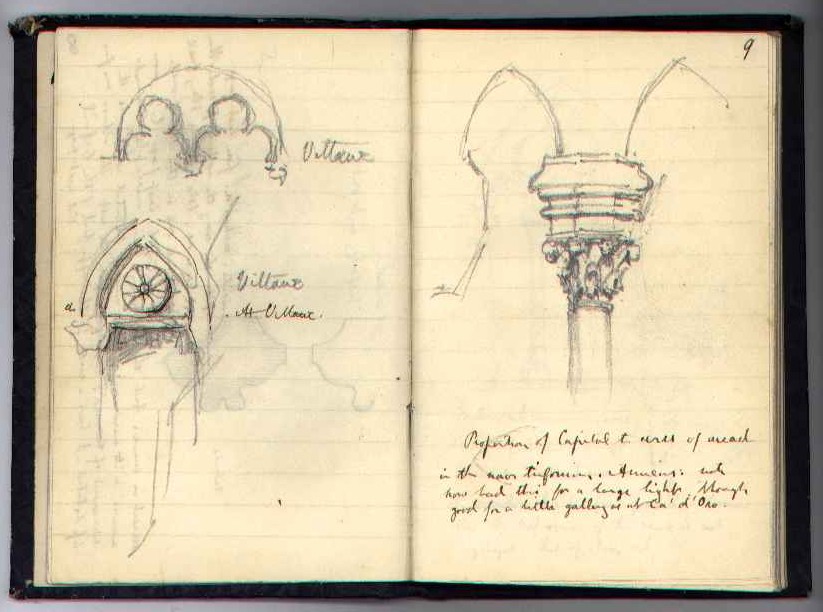 Villaux
Villaux
a
At Villaux.
9
Proportion of Capital to arch of arcade
in the nave triforium. Amiens: note
how bad this for a large light, though
good for a little gallery as at Ca' d'Oro.